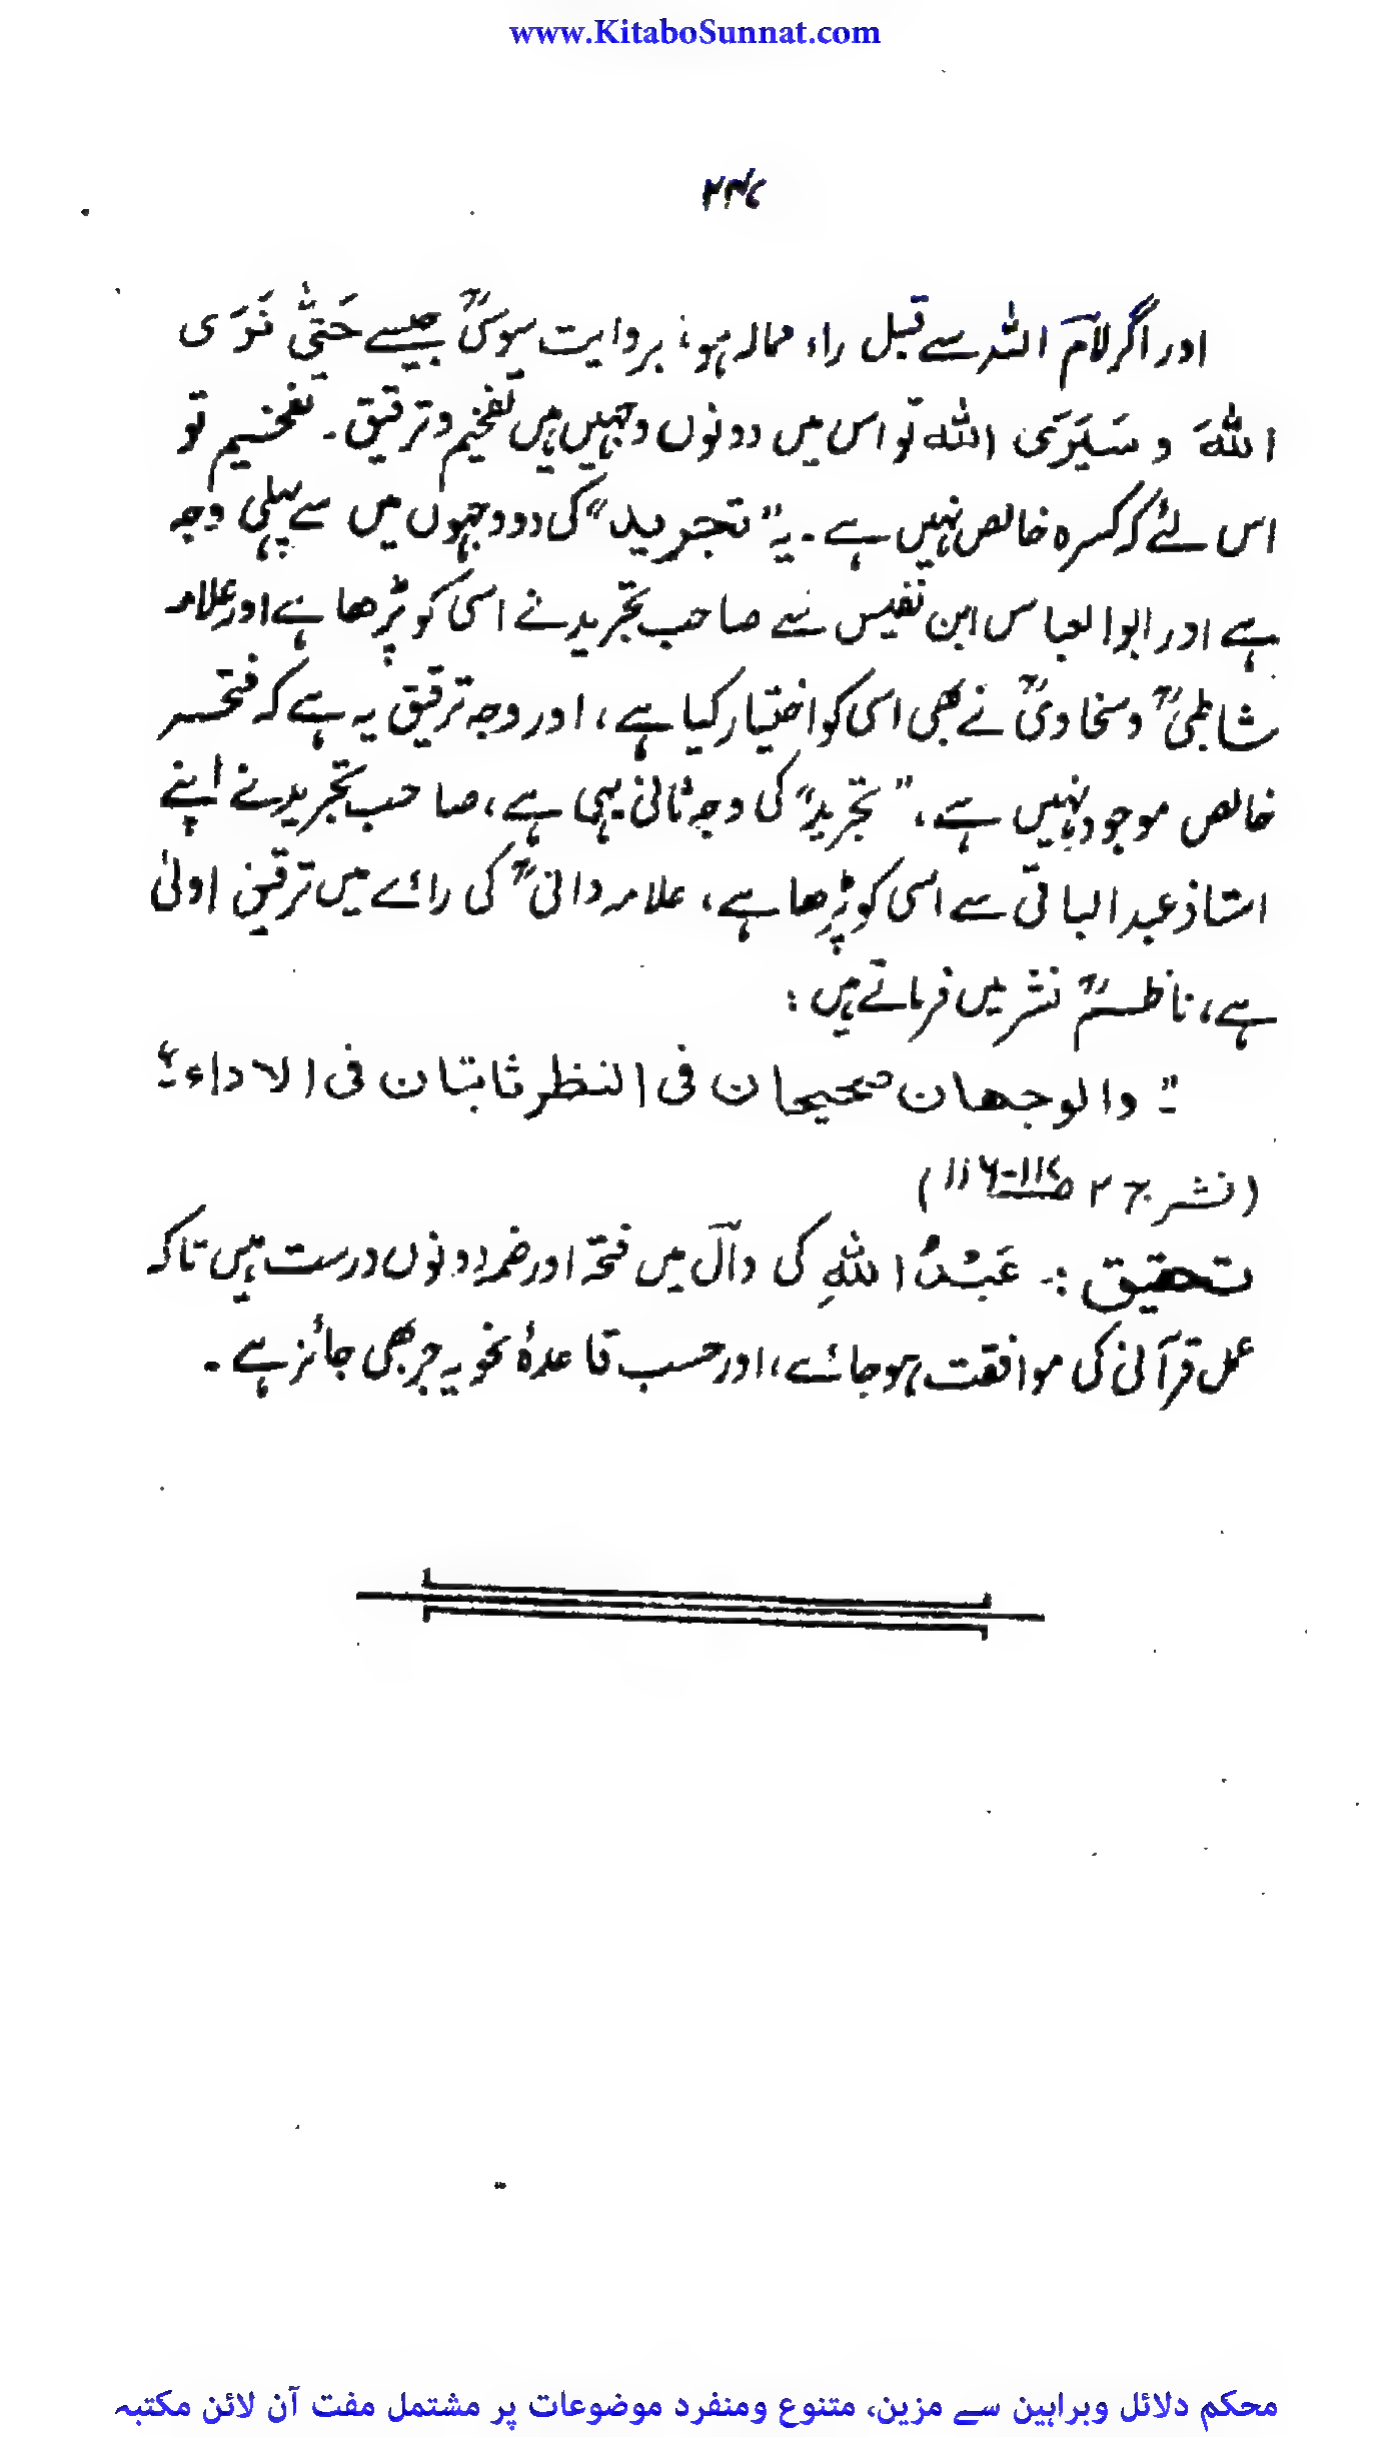 www.KitaboSunnat.com
۲۳۷
اور اگر لامَ اللہ سے قبل راء ممالہ ہو، بروایت سوسیؒ جیسے حَتّٰی نَرَی
اللّٰہَ و سَیَرَی اللّٰہ تو اس میں دونوں وجہیں ہیں تفخیم و ترقیق۔ تفخیم تو
اس لئے کہ کسرہ خالص نہیں ہے۔ یہ "تجرید" کی دو وجہوں میں سے پہلی وجہ
ہے اور ابوالعباس ابن نفیس سے صاحب تجرید نے اسی کو پڑھا ہے اور علامہ
شاطبیؒ و سخاویؒ نے بھی اسی کو اختیار کیا ہے، اور وجہ ترقیق یہ ہے کہ فتحہ
خالص موجود نہیں ہے، "تجرید" کی وجہ ثانی یہی ہے، صاحب تجرید نے اپنے
استاذ عبدالباقی سے اسی کو پڑھا ہے، علامہ دانیؒ کی رائے میں ترقیق اولیٰ
ہے، ناظمؒ نشر میں فرماتے ہیں :
"والوجھان صحیحان فی النظر ثابتان فی الاداء"
(نشر ج ۲ ص ۱۱۶-۱۱۷)
تحقیق :۔ عَبْدُ اللّٰہِ کی دآل میں فتحہ اور ضمہ دونوں درست ہیں تاکہ
عمل قرآنی کی موافقت ہو جائے، اور حسب قاعدۂ نحویہ جر بھی جائز ہے۔
محکم دلائل وبراہین سے مزین، متنوع ومنفرد موضوعات پر مشتمل مفت آن لائن مکتبہ